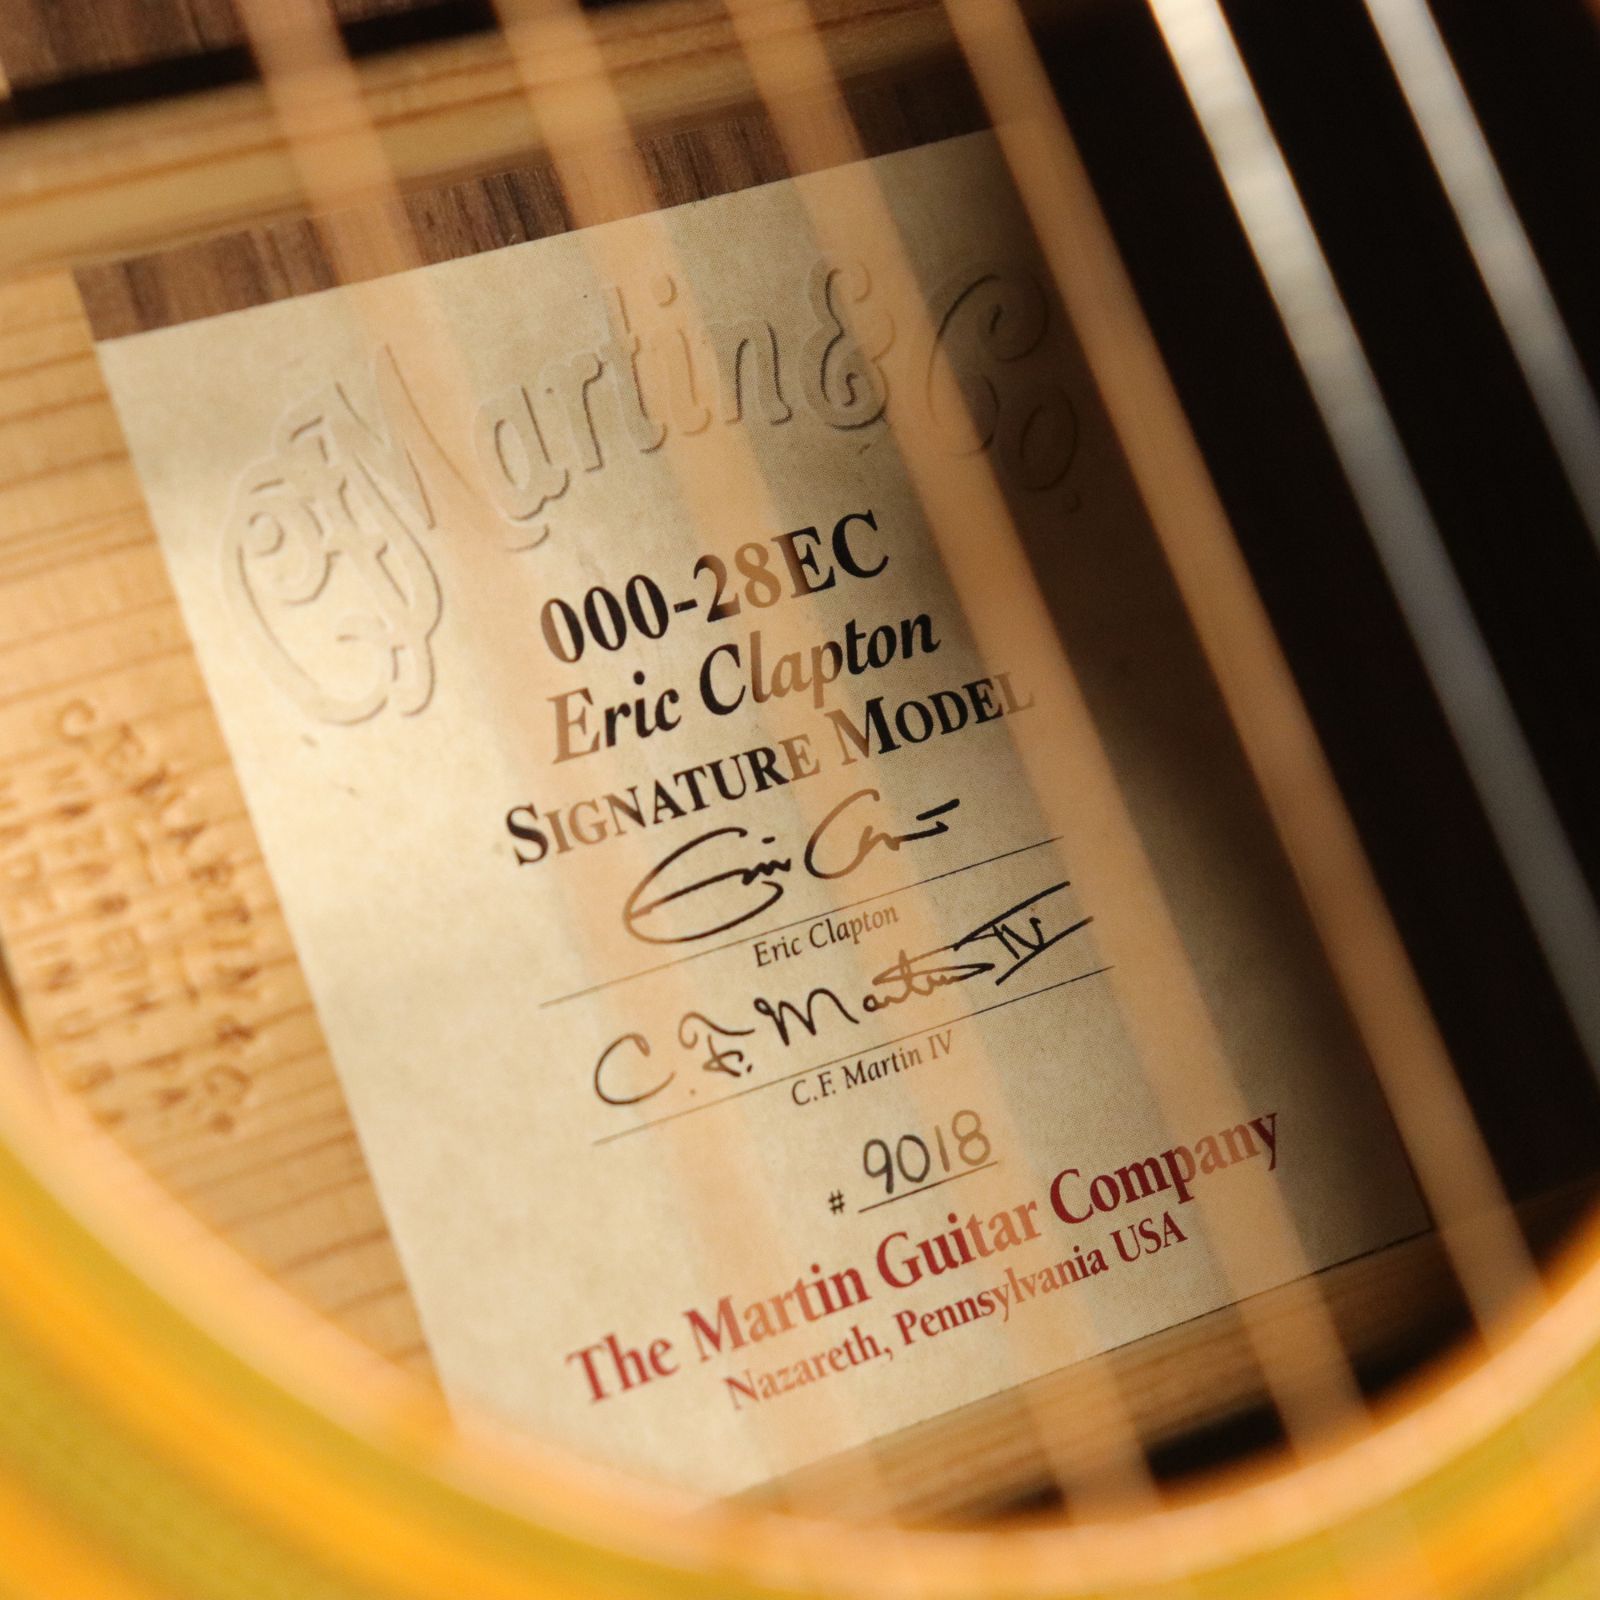 CF Martin & Co.
000-28EC
Eric Clapton
SIGNATURE MODEL
Eric Clapton
C. F. Martin IV
C.F. Martin IV
# 9018
The Martin Guitar Company
Nazareth, Pennsylvania USA
C.F. MARTIN & Co.
NAZARETH, PA.
MADE IN U.S.A.